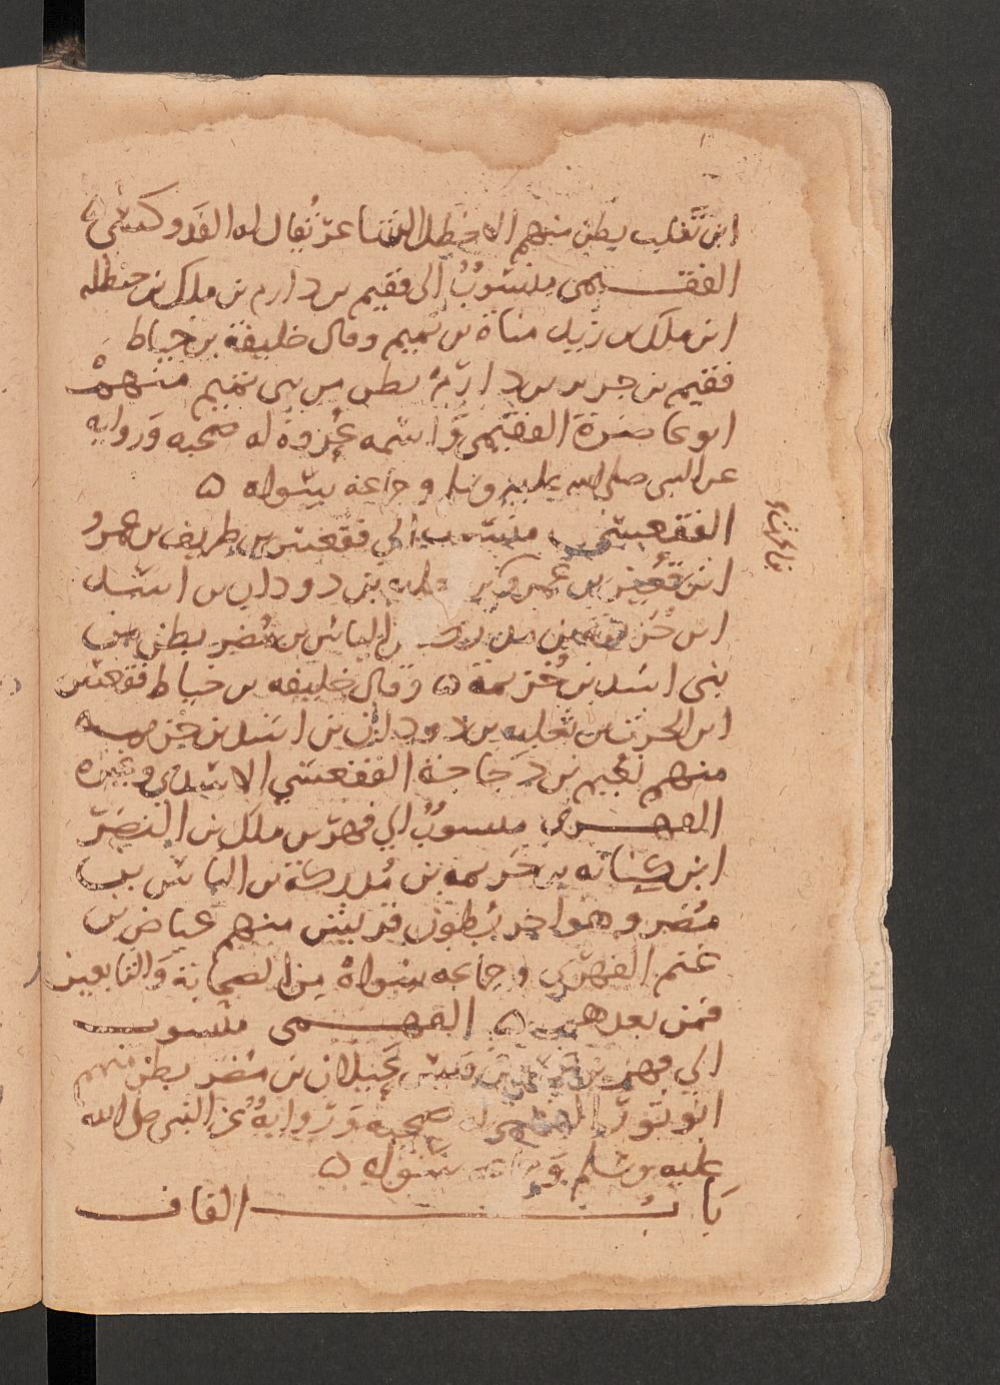 ابن تغلب بطن منهم الاخطل الشاعر يُقال له الفَدَوكسي ه
الفقيمي منسُوبٌ الى فقيم بن دارم بن ملك بن حنظله
ابن ملك بن زيد مناة بن تميم وقال خليفة بن خياط
فقيم بن جرير بن دارم بطن من بني تميم منهم
ابو عاضرة الفقيمي واسمه عُروة له صحبه وروايه
عن النبي صلى الله عليه وسلم وجماعه سواه ه
الفقعسي منسوب الي فقعس بن طريف بن عمرو
ابن قُعين بن عمرو بن بن دودان بن اسد
ابن خزيمه بن بن الياس بن مُضر بطن من
بني اسد بن خُزيمة ه وقال خليفه بن خياط فقعس
ابن الحرث بن ثعلبه بن دودان بن اسد بن خزيمه
منهم بن دجاجة الفقعسي الاسدي وغيره
الفهري منسوبٌ الي فهر بن ملك بن النضر
ابن كنانه بن خزيمه بن مُدركة بن الياس بن
مُضر وهو اخر بُطون قريش منهم عياض بن
غنم الفهري وجماعه سواهُ من الصحابة والتابعين
فمن بعدهم ه الفهمي منسوب
الي فهم بن بن قيس عَيلان بن مُضر بطن منهم
ابو ثور الفهمي له صحبه وَروايةٌ عن النبي صلى الله
عليه وسلم سواه ه
بَابُ القاف